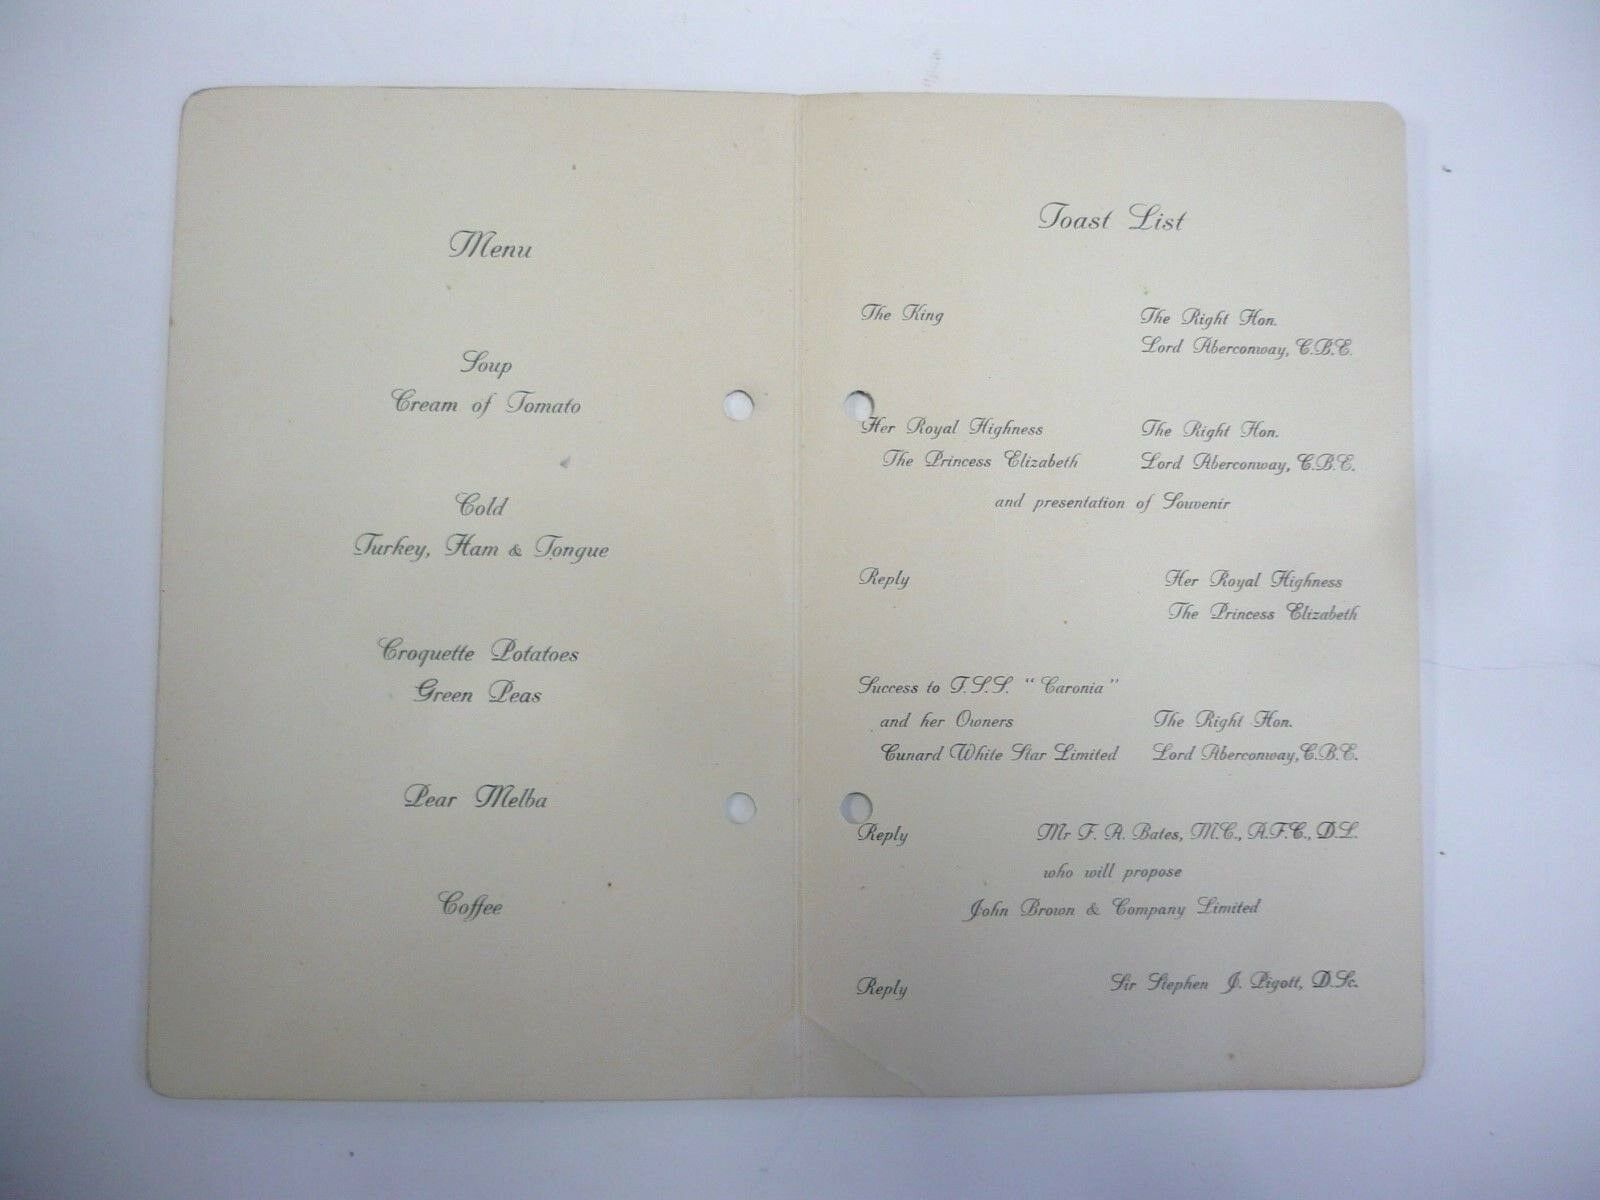 Menu
Soup
Cream of Tomato
Cold
Turkey, Ham & Tongue
Croquette Potatoes
Green Peas
Pear Melba
Coffee
Toast List
The King
The Right Hon.
Lord Aberconway, C.B.E.
Her Royal Highness
The Princess Elizabeth
The Right Hon.
Lord Aberconway, C.B.E.
and presentation of Souvenir
Reply
Her Royal Highness
The Princess Elizabeth
Success to T.S.S. "Caronia"
and her Owners
Cunard White Star Limited
The Right Hon.
Lord Aberconway, C.B.E.
Reply
Mr F. A. Bates, M.C., A.F.C., D.L.
who will propose
John Brown & Company Limited
Reply
Sir Stephen J. Pigott, D.Sc.